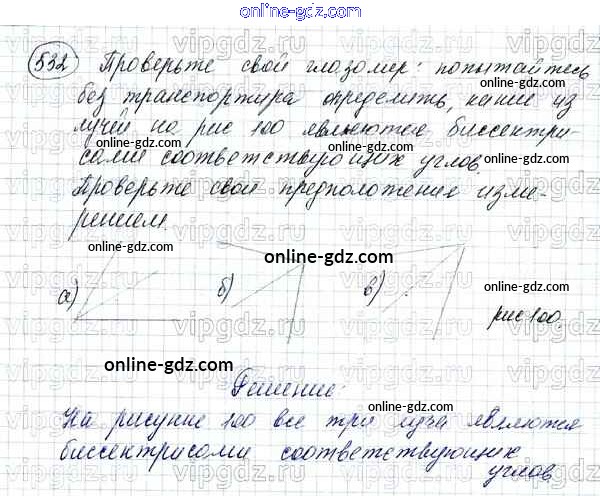 online-gdz.com
532 Проверьте свой глазомер: попытайтесь
без транспортира определить, какие из
лучей на рис 100 являются биссектри-
сами соответствующих углов.
Проверьте свои предположения изме-
рением.
online-gdz.com online-gdz.com online-gdz.com
а) б) в)
рис 100.
online-gdz.com online-gdz.com
Решение:
На рисунке 100 все три луча являются
биссектрисами соответствующих
углов